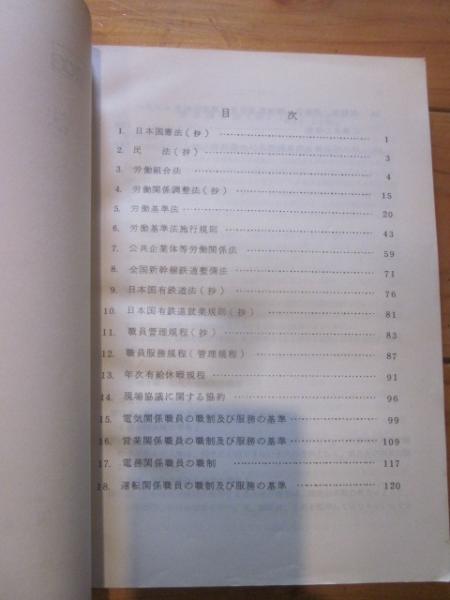 目 次
1. 日本国憲法(抄) 1
2. 民 法(抄) 3
3. 労働組合法 4
4. 労働関係調整法(抄) 15
5. 労働基準法 20
6. 労働基準法施行規則 43
7. 公共企業体等労働関係法 59
8. 全国新幹線鉄道整備法 71
9. 日本国有鉄道法(抄) 76
10. 日本国有鉄道就業規則(抄) 81
11. 職員管理規程(抄) 83
12. 職員服務規程(管理規程) 87
13. 年次有給休暇規程 91
14. 現場協議に関する協約 96
15. 電気関係職員の職制及び服務の基準 99
16. 営業関係職員の職制及び服務の基準 109
17. 電務関係職員の職制 117
18. 運転関係職員の職制及び服務の基準 120